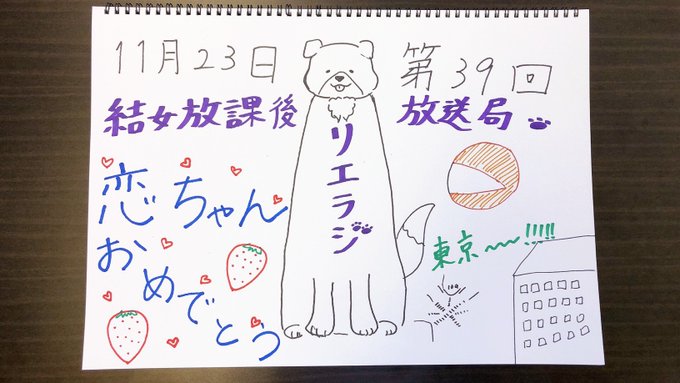 11月23日 第39回
結女放課後 放送局
リエラジ
恋ちゃん
おめでとう
東京～～!!!!!